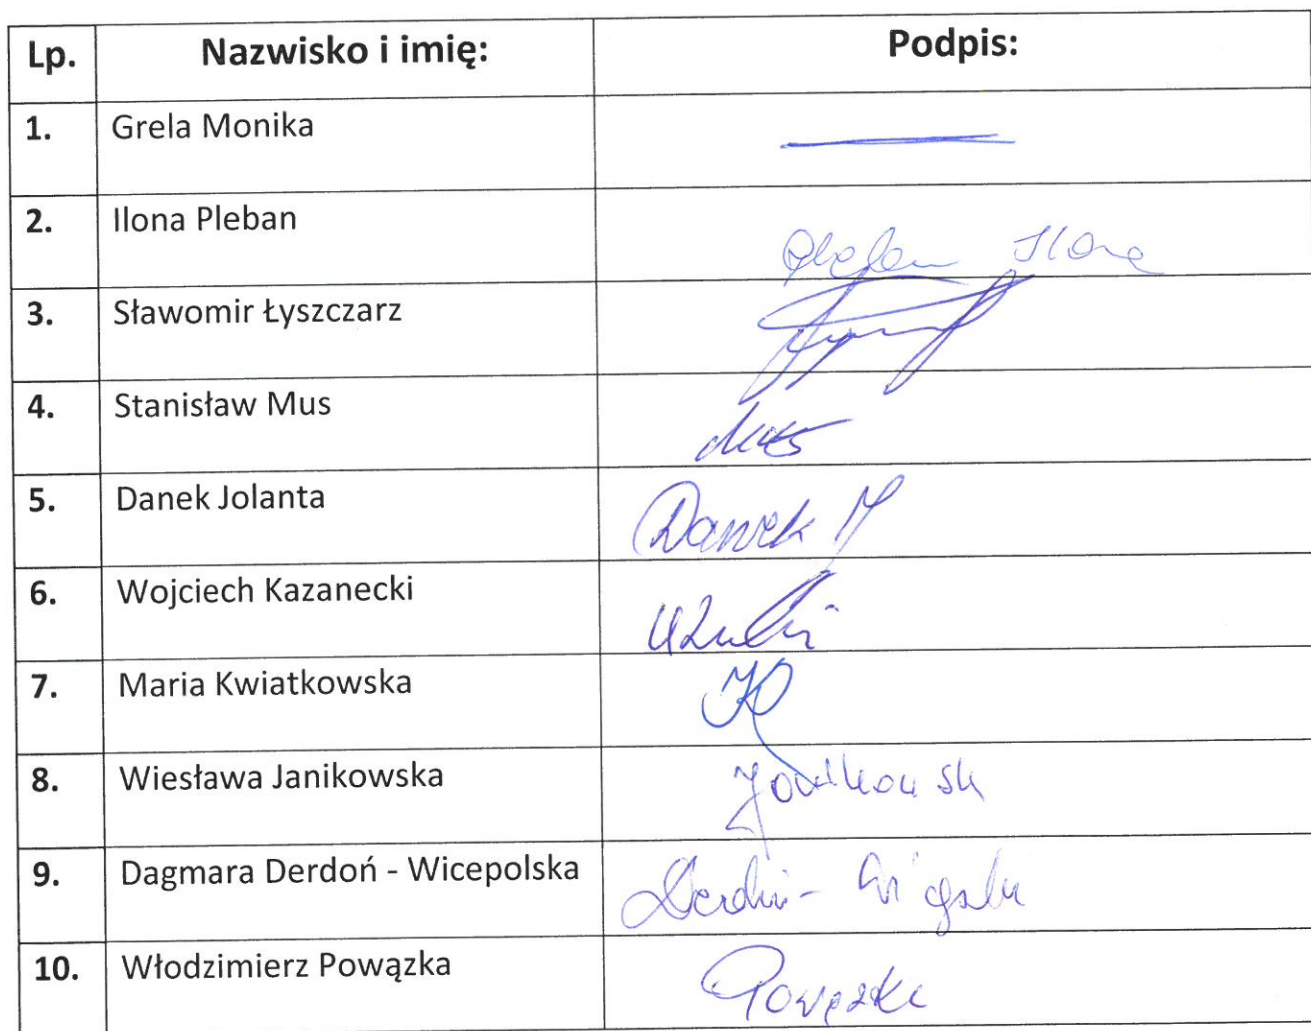 Lp. Nazwisko i imię: Podpis:
1. Grela Monika
2. Ilona Pleban Pleban Ilona
3. Sławomir Łyszczarz
4. Stanisław Mus Mus
5. Danek Jolanta Danek J
6. Wojciech Kazanecki
7. Maria Kwiatkowska
8. Wiesława Janikowska
9. Dagmara Derdoń - Wicepolska
10. Włodzimierz Powązka Powązka